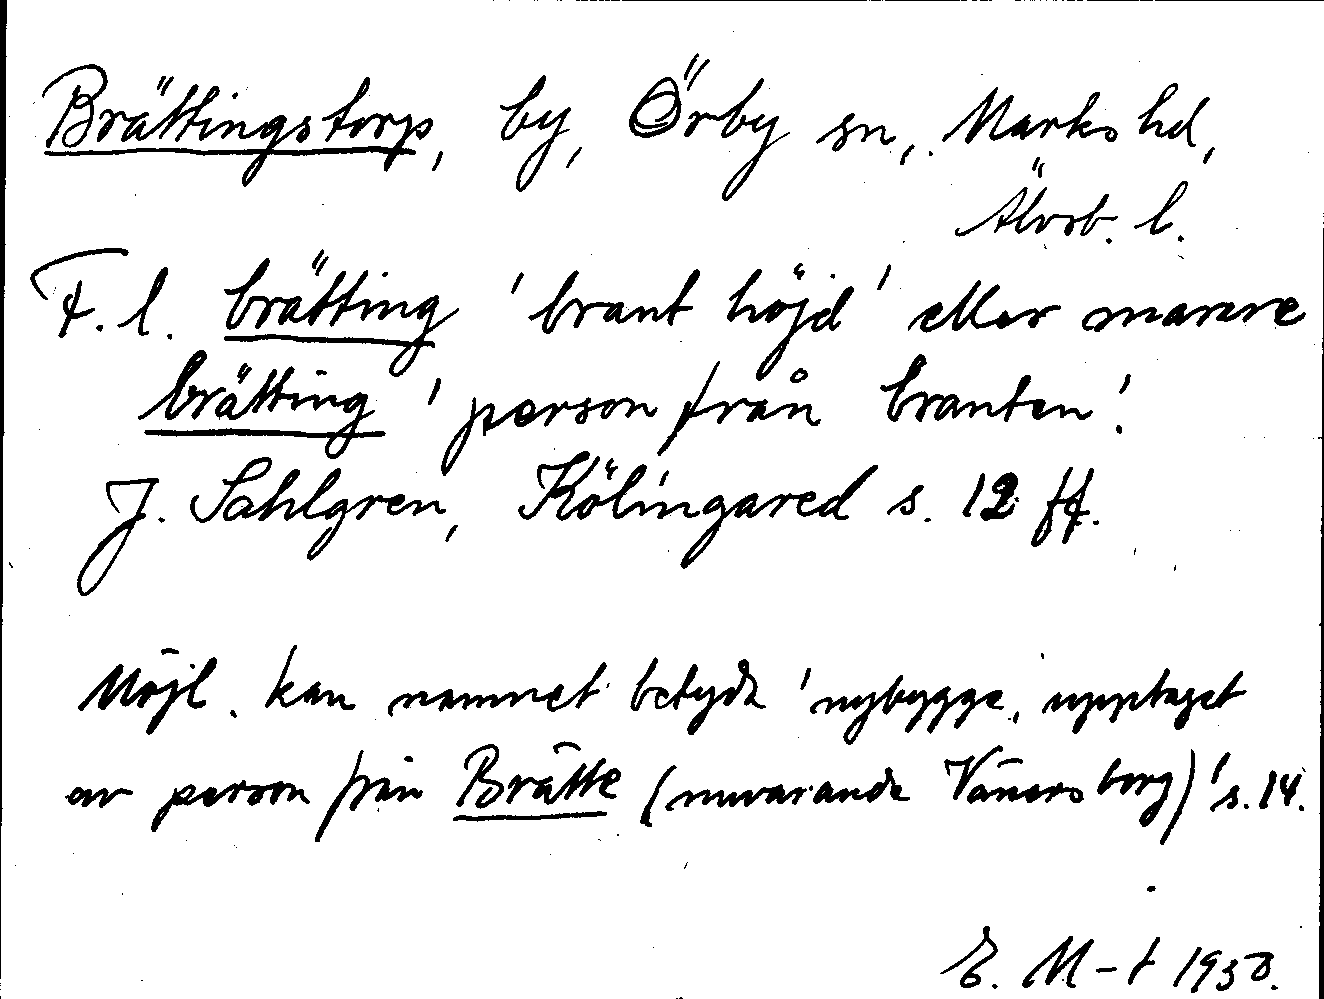 Brättingstorp, by, Örby sn, Marks hd,
Älvsb. l.
F. l. brätting 'brant höjd' eller snarare
brätting 'person från branten'.
J. Sahlgren, Kölingared s. 12 ff.
Möjl. kan namnet betyda 'nybygge, upptaget
av person från Brätte (nuvarande Vänersborg)' s. 14.
E. M-t 1938.